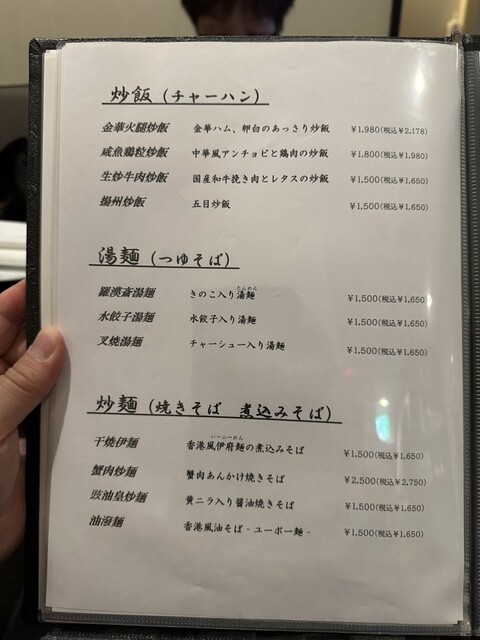 炒飯(チャーハン)
金華火腿炒飯 金華ハム、卵白のあっさり炒飯 ¥1,980(税込¥2,178)
咸魚鶏粒炒飯 中華風アンチョビと鶏肉の炒飯 ¥1,800(税込¥1,980)
生炒牛肉炒飯 国産和牛挽き肉とレタスの炒飯 ¥1,500(税込¥1,650)
揚州炒飯 五目炒飯 ¥1,500(税込¥1,650)
湯麺(つゆそば)
たんめん
羅漢斎湯麺 きのこ入り湯麺 ¥1,500(税込¥1,650)
水餃子湯麺 水餃子入り湯麺 ¥1,500(税込¥1,650)
叉焼湯麺 チャーシュー入り湯麺 ¥1,500(税込¥1,650)
炒麺(焼きそば 煮込みそば)
いーふーめん
干焼伊麺 香港風伊府麺の煮込みそば ¥1,500(税込¥1,650)
蟹肉炒麺 蟹肉あんかけ焼きそば ¥2,500(税込¥2,750)
豉油皇炒麺 黄ニラ入り醤油焼きそば ¥1,500(税込¥1,650)
油溌麺 香港風油そば - ユーポー麺 - ¥1,500(税込¥1,650)